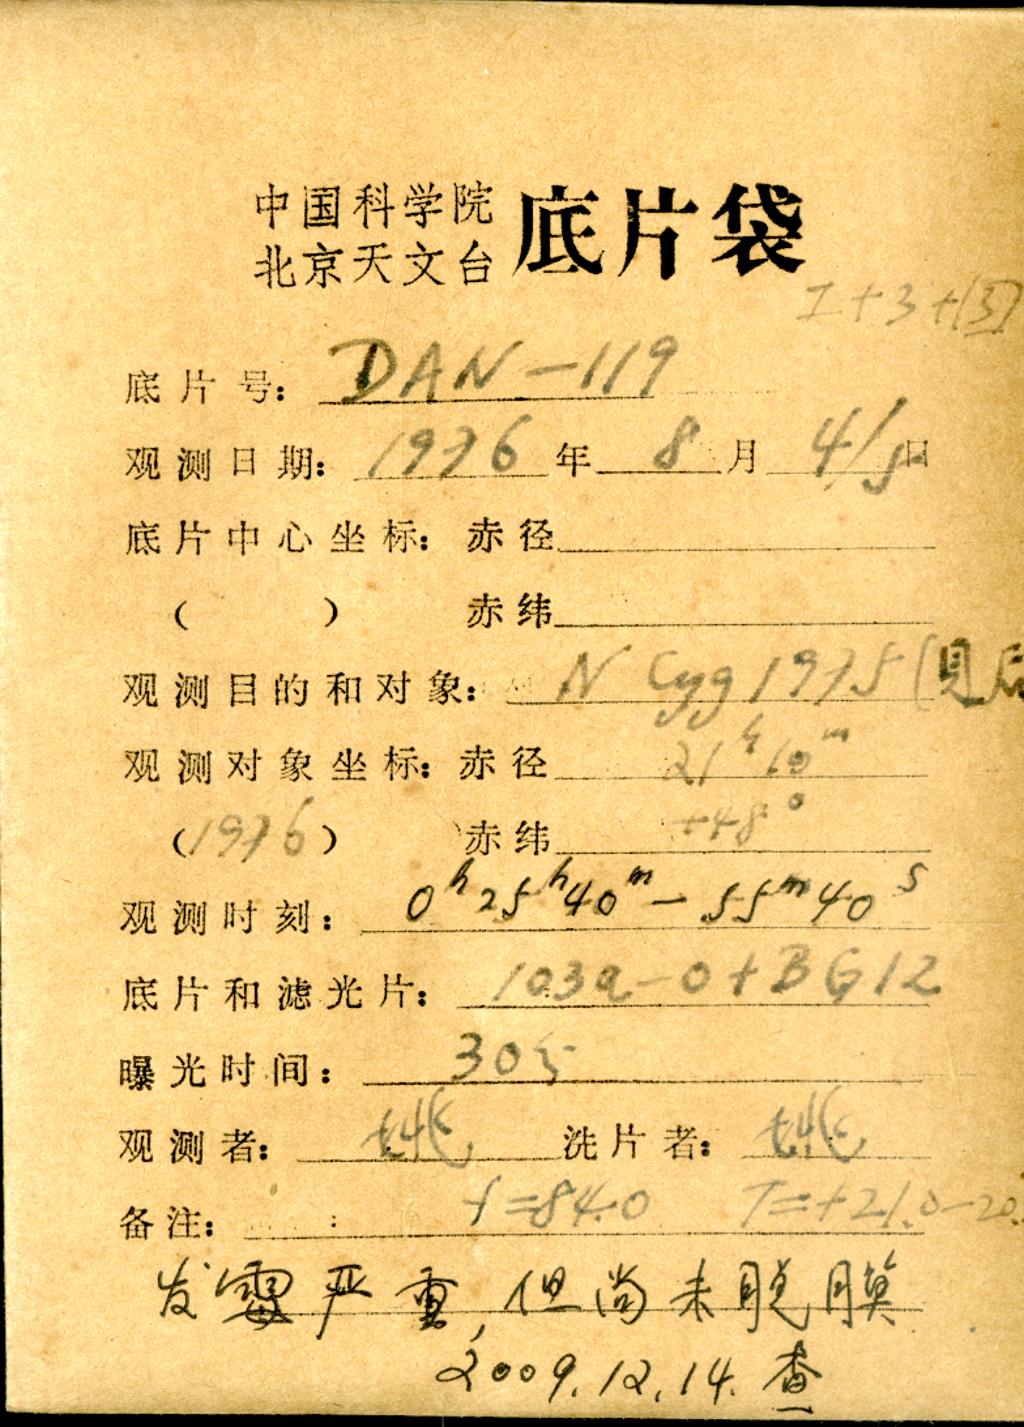 中国科学院
北京天文台
底片袋
I+3+[3]
底片号：DAN-119
观测日期：1976年8月4/5日
底片中心坐标：赤径
（ ） 赤纬
观测目的和对象：N Cyg 1975（見后
观测对象坐标：赤径 21ʰ10ᵐ
（1976） 赤纬 +48°
观测时刻：0ʰ25ʰ40ᵐ-55ᵐ40ˢ
底片和滤光片：103a-0+BG12
曝光时间：30分
观测者：姚 洗片者：姚
备注：f=84.0 T=+21.0-20.
发霉严重，但尚未脱膜
2009.12.14.查